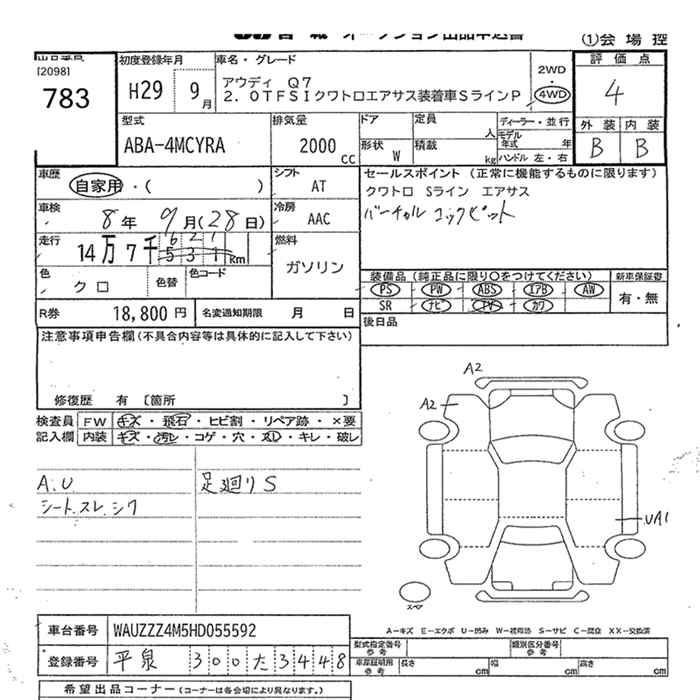 ①会場控
[2098]
783
初度登録年月
H29 9月
車名・グレード
アウディ Q7
2.0TFSIクワトロエアサス装着車SラインP
2WD
4WD
評価点
4
外装 内装
B B
型式
ABA-4MCYRA
排気量
2000 cc
ドア
定員 人
形状 W
積載 kg
ディーラー・並行
モデル年式 年
ハンドル 左・右
車歴
自家用・( )
シフト
AT
車検
8年 9月(28日)
冷房
AAC
走行
14万7千621km
531
燃料
ガソリン
色
クロ
色替
色コード
セールスポイント(正常に機能するものに限ります)
クワトロ Sライン エアサス
バーチャル コックピット
装備品(純正品に限り○をつけてください)
PS PW ABS エアB AW
SR ナビ TV カワ
新車保証書
有・無
後日品
R券
18,800円
名変通知期限 月 日
注意事項申告欄(不具合内容等は具体的に記入して下さい)
修復歴 有 〔箇所 〕
検査員記入欄
FW キズ・飛石・ヒビ割・リペア跡・×要
内装 キズ・汚レ・コゲ・穴・スレ・キレ・破レ
A.U
シートスレ、シワ
足廻りS
A2
A2
UA1
スペア
車台番号
WAUZZZ4M5HD055592
登録番号
平泉 300た3448
A-キズ E-エクボ U-凹み W-補修跡 S-サビ C-腐食 XX-交換済
型式指定番号 参考
類別区分番号 参考
車庫証明用 参考
長さ cm
幅 cm
高さ cm
希望出品コーナー(コーナーは各会場により異なります。)